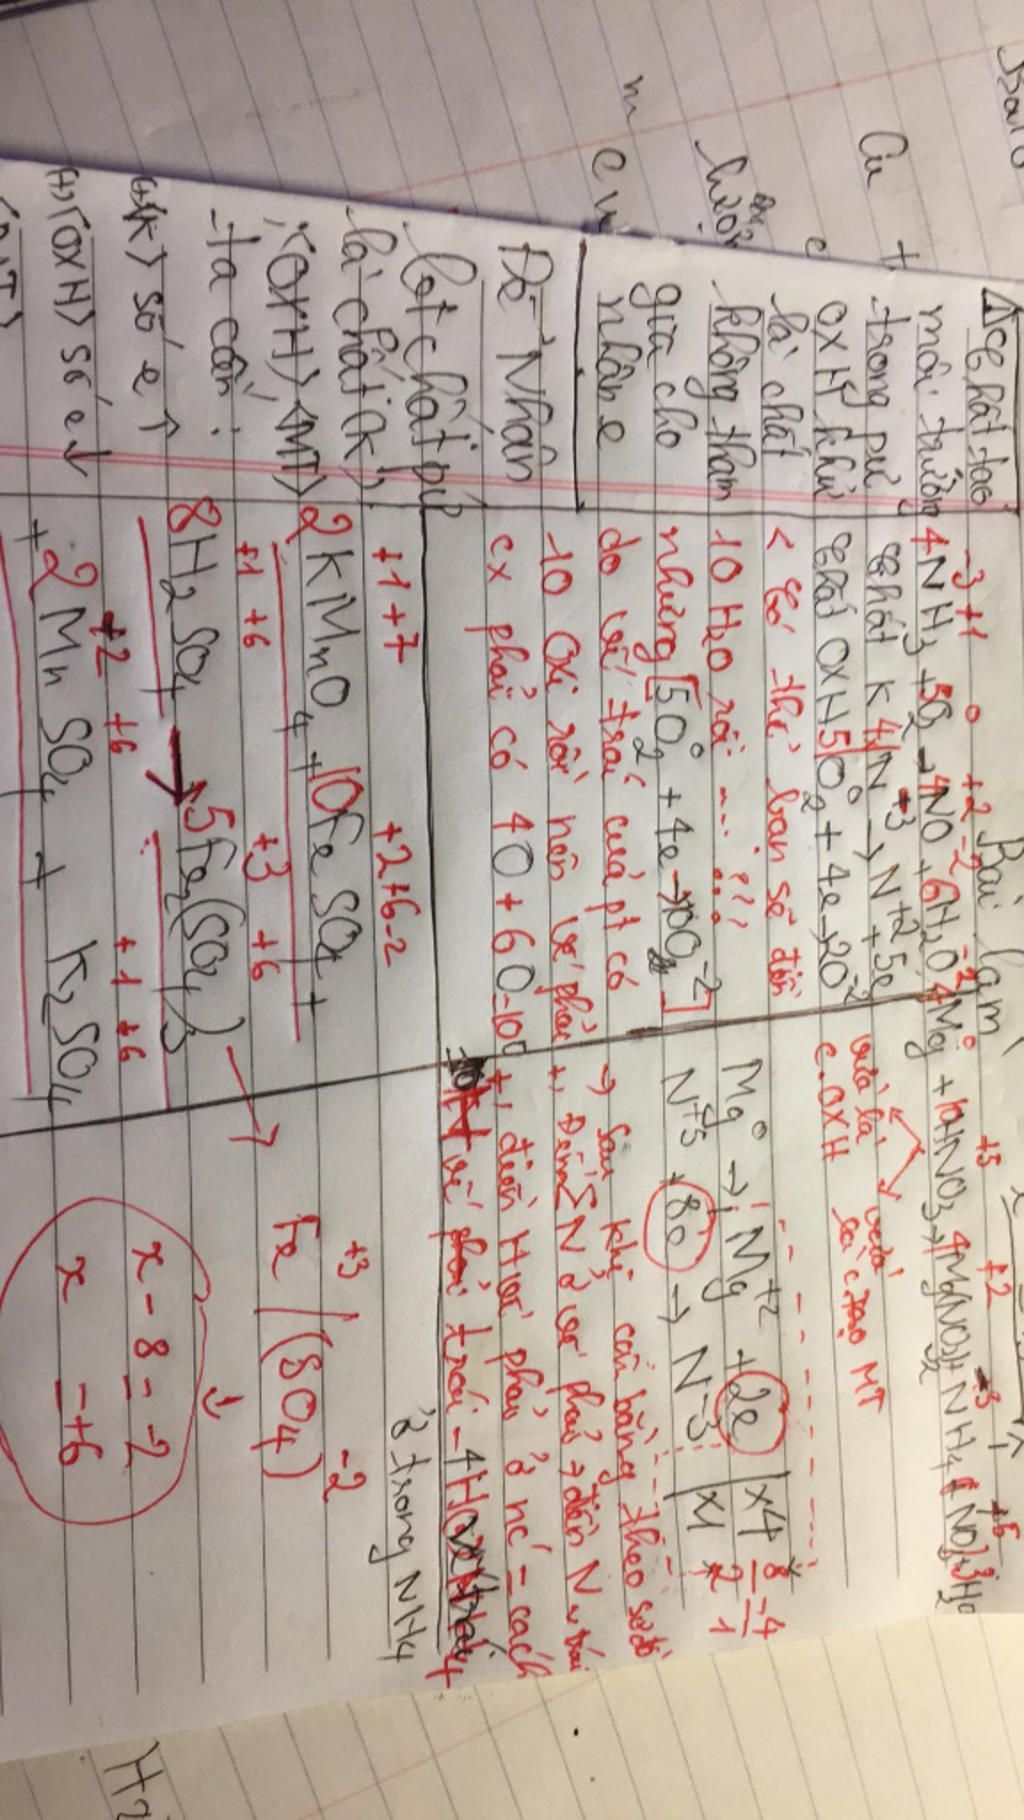 Bài làm
△ Chất tạo
môi trường
trong pứ
oxH khử
là chất
không tham
gia cho
nhận e
-3 +1 0 +2 -2 -2
4NH3 + 5O2 → 4NO + 6H2O
Chất K 4N-3 → N+2 + 5e
Chất OXH 5O2 + 4e → 2O-2
< Có thể bạn sẽ điền
10 H2O rồi ... ???
nhưng [5O2 + 4e → 10O-2]
do vế trái của pt có
10 Oxi rồi nên vế phải
cx phải có 4O + 6O = 10O
0 +5 +2 -3 +5
4Mg + 10HNO3 → 4Mg(NO3)2 + NH4NO3 + 3H2O
vừa là vừa
c.OXH là c.tạo MT
Mg0 → Mg+2 + 2e | x4 8 -4
N+5 + 8e → N-3 | x1 2 1
→ Sau khi cân bằng theo sơ đồ
+, Đếm Σ N ở vế phải → điền N vế trái
+, điền H vế phải ở nc = cách
vế trái - 4H
ở trong NH4
Để Nhận
biết chất pứ
là chất (K),
(OXH), (MT)
ta cần:
(K) số e ↑
(OXH) số e ↓
+1 +7 +2 +6 -2
2KMnO4 + 10FeSO4 +
+1 +6 +3 +6
8H2SO4 → 5Fe2(SO4)3
+2 +6 +1 +6
+ 2MnSO4 + K2SO4
+3 -2
Fe / (SO4)
x - 8 = -2
x = +6
H2